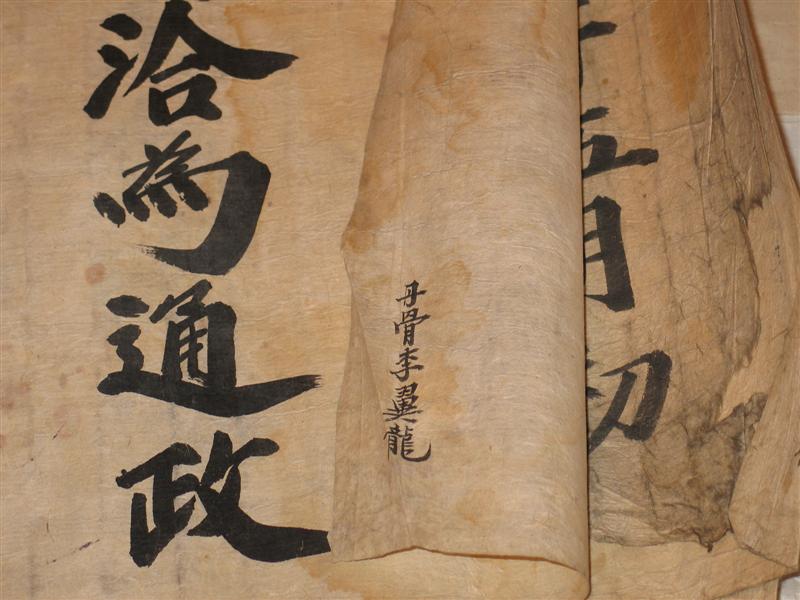 五月初
丹骨李翼龍
洽為通政